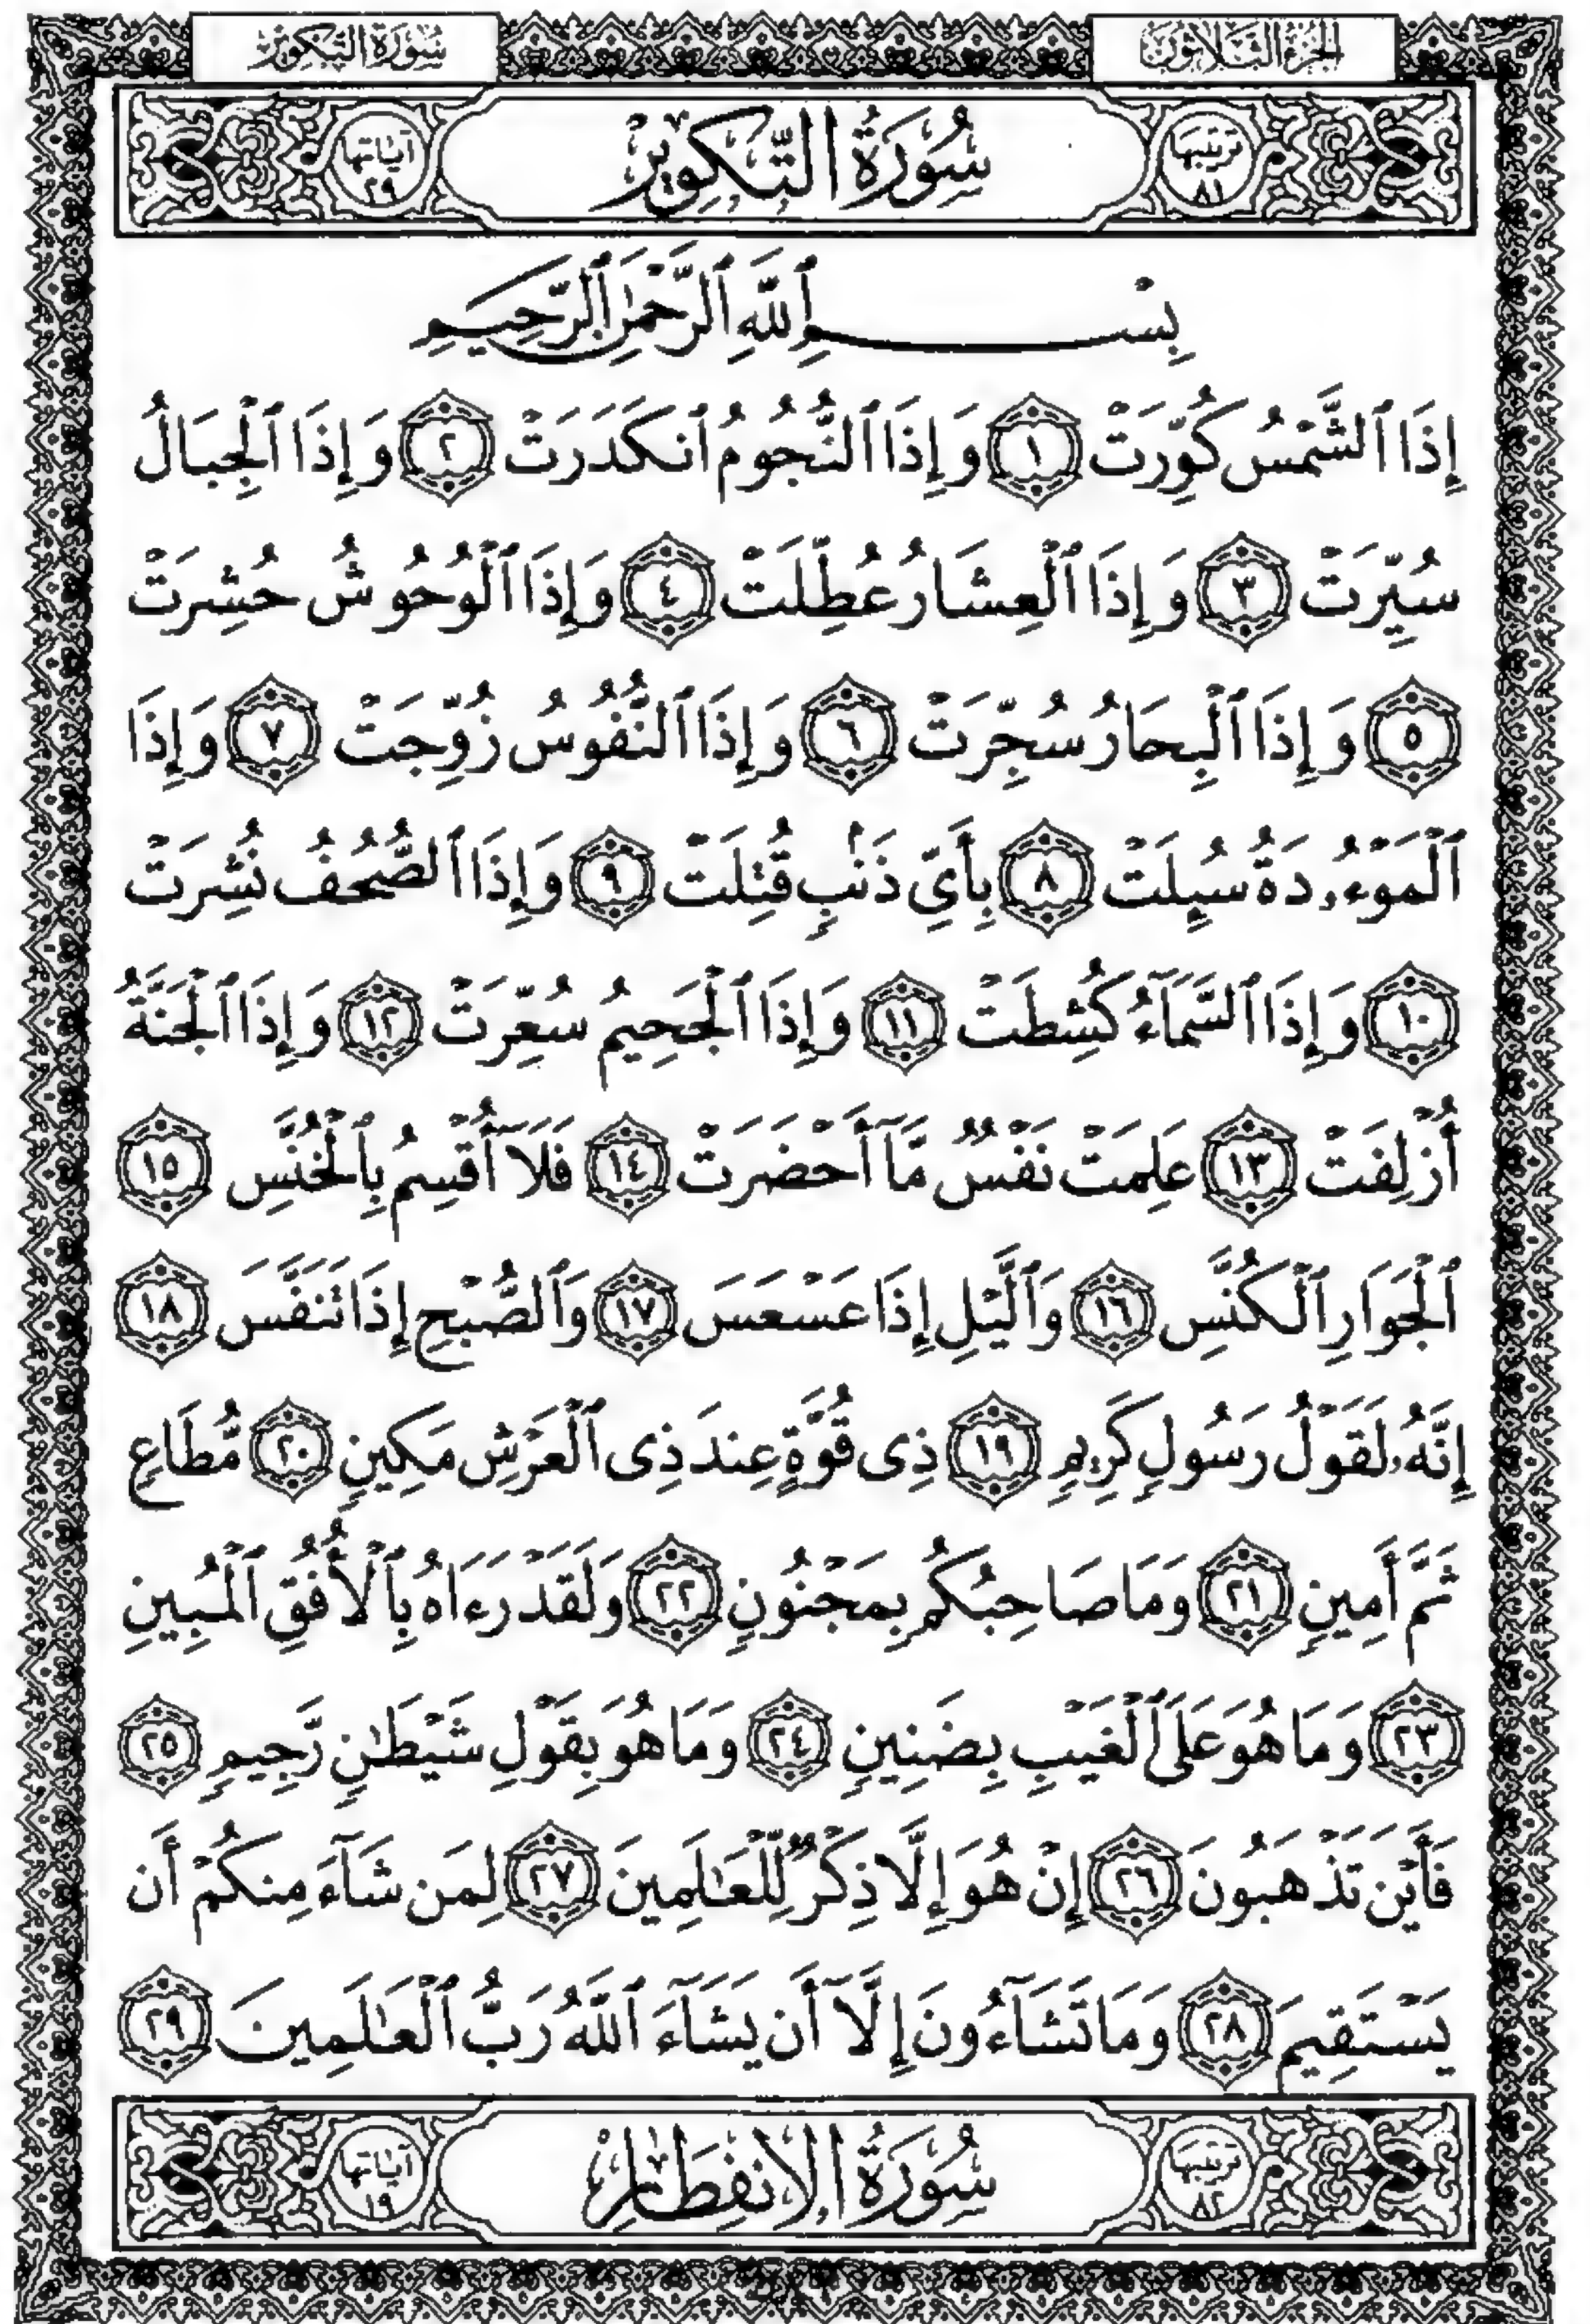 الجزء الثلاثون
سورة التكوير
ترتيبها ٨١
سُورَةُ التَّكْوِيرِ
آياتها ٢٩
بِسْمِ ٱللَّهِ ٱلرَّحْمَٰنِ ٱلرَّحِيمِ
إِذَا ٱلشَّمْسُ كُوِّرَتْ ١ وَإِذَا ٱلنُّجُومُ ٱنكَدَرَتْ ٢ وَإِذَا ٱلْجِبَالُ
سُيِّرَتْ ٣ وَإِذَا ٱلْعِشَارُ عُطِّلَتْ ٤ وَإِذَا ٱلْوُحُوشُ حُشِرَتْ
٥ وَإِذَا ٱلْبِحَارُ سُجِّرَتْ ٦ وَإِذَا ٱلنُّفُوسُ زُوِّجَتْ ٧ وَإِذَا
ٱلْمَوْءُۥدَةُ سُئِلَتْ ٨ بِأَىِّ ذَنۢبٍ قُتِلَتْ ٩ وَإِذَا ٱلصُّحُفُ نُشِرَتْ
١٠ وَإِذَا ٱلسَّمَآءُ كُشِطَتْ ١١ وَإِذَا ٱلْجَحِيمُ سُعِّرَتْ ١٢ وَإِذَا ٱلْجَنَّةُ
أُزْلِفَتْ ١٣ عَلِمَتْ نَفْسٌ مَّآ أَحْضَرَتْ ١٤ فَلَآ أُقْسِمُ بِٱلْخُنَّسِ ١٥
ٱلْجَوَارِ ٱلْكُنَّسِ ١٦ وَٱلَّيْلِ إِذَا عَسْعَسَ ١٧ وَٱلصُّبْحِ إِذَا تَنَفَّسَ ١٨
إِنَّهُۥ لَقَوْلُ رَسُولٍ كَرِيمٍ ١٩ ذِى قُوَّةٍ عِندَ ذِى ٱلْعَرْشِ مَكِينٍ ٢٠ مُّطَاعٍ
ثَمَّ أَمِينٍ ٢١ وَمَا صَاحِبُكُم بِمَجْنُونٍ ٢٢ وَلَقَدْ رَءَاهُ بِٱلْأُفُقِ ٱلْمُبِينِ
٢٣ وَمَا هُوَ عَلَى ٱلْغَيْبِ بِضَنِينٍ ٢٤ وَمَا هُوَ بِقَوْلِ شَيْطَٰنٍ رَّجِيمٍ ٢٥
فَأَيْنَ تَذْهَبُونَ ٢٦ إِنْ هُوَ إِلَّا ذِكْرٌ لِّلْعَٰلَمِينَ ٢٧ لِمَن شَآءَ مِنكُمْ أَن
يَسْتَقِيمَ ٢٨ وَمَا تَشَآءُونَ إِلَّآ أَن يَشَآءَ ٱللَّهُ رَبُّ ٱلْعَٰلَمِينَ ٢٩
ترتيبها ٨٢
سُورَةُ الِانفِطَارِ
آياتها ١٩